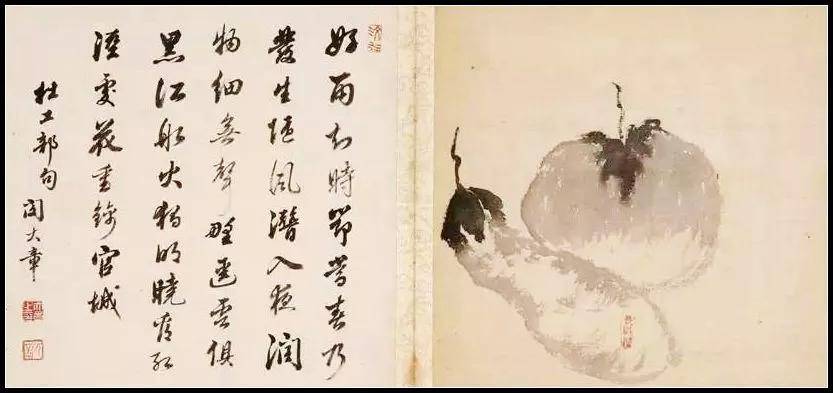 好雨知時節當春乃
發生随風潛入夜潤
物細無聲野逕雲俱
黑江船火獨明曉看紅
溼處花重錦官城
杜工部句 閔大章